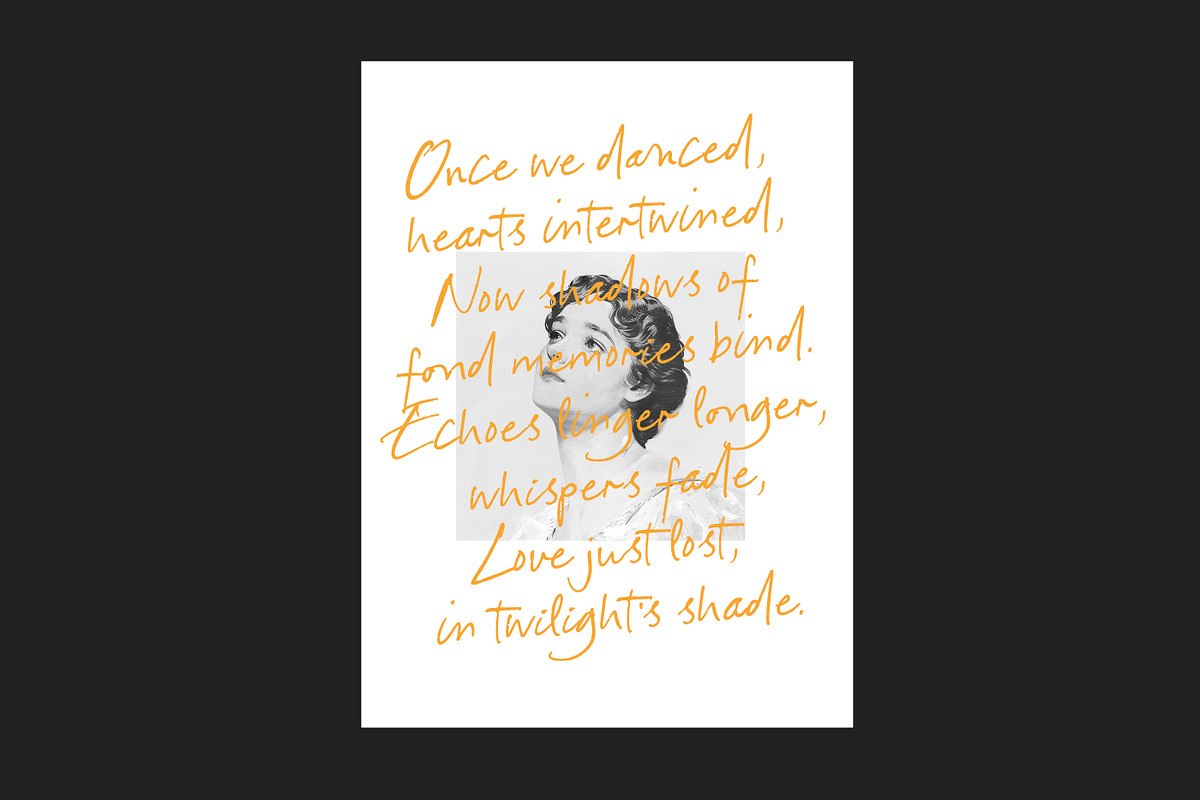 Once we danced,
hearts intertwined,
Now shadows of
fond memories bind.
Echoes linger longer,
whispers fade,
Love just lost,
in twilight's shade.